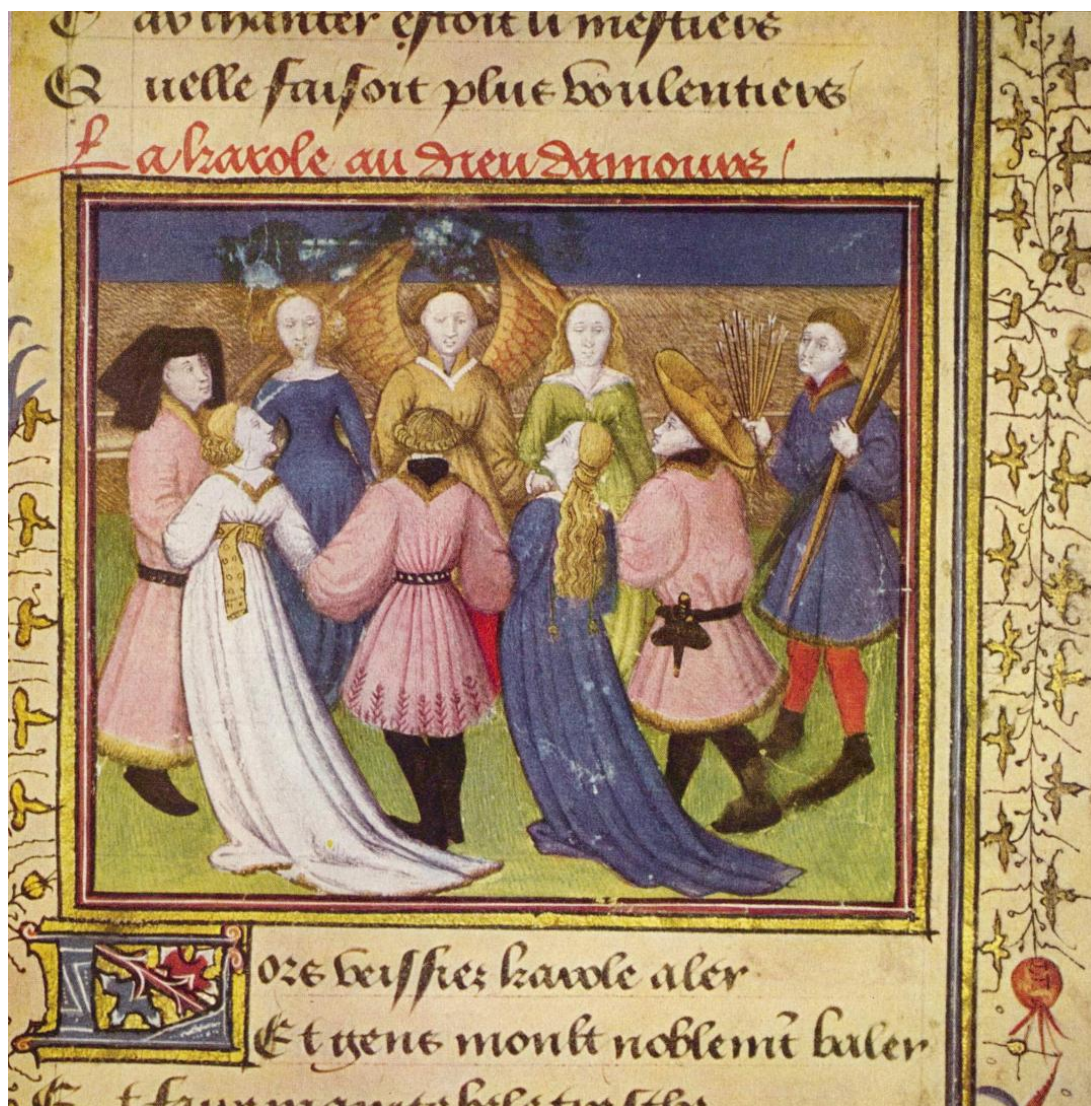 au chanter estoit li mestiers
Quelle faisoit plus voulentiers
La karole au dieu damours
Lors veissiez karole aler
Et gens moult noblem̄t baler
Et faire mainte bele tresche